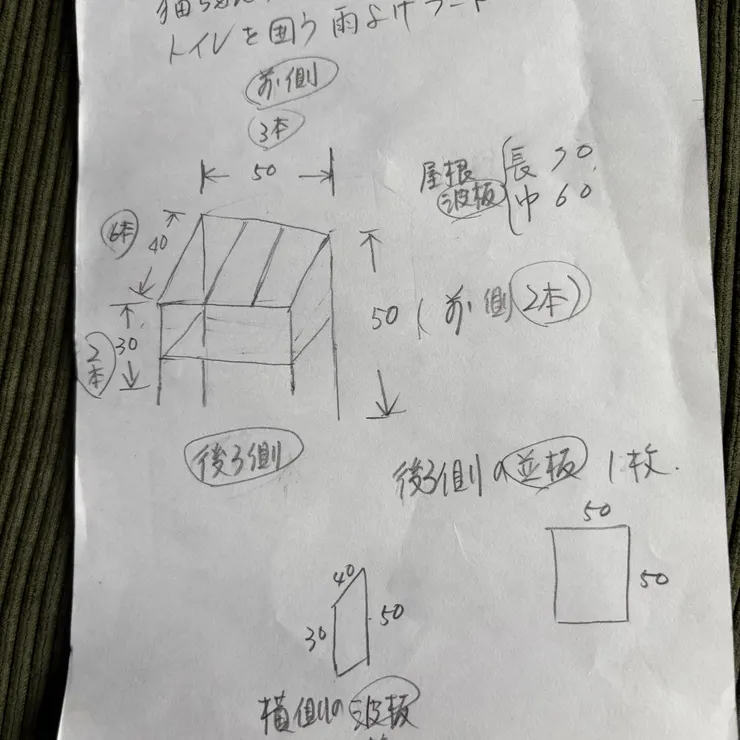 トイレを囲う雨よけフード
前側
3本
50
屋根
波板
長 70
巾 60
6本
40
50 (前側 2本)
30
2本
後ろ側
後ろ側の並板 1枚.
50
50
40
30
50
横側の波板